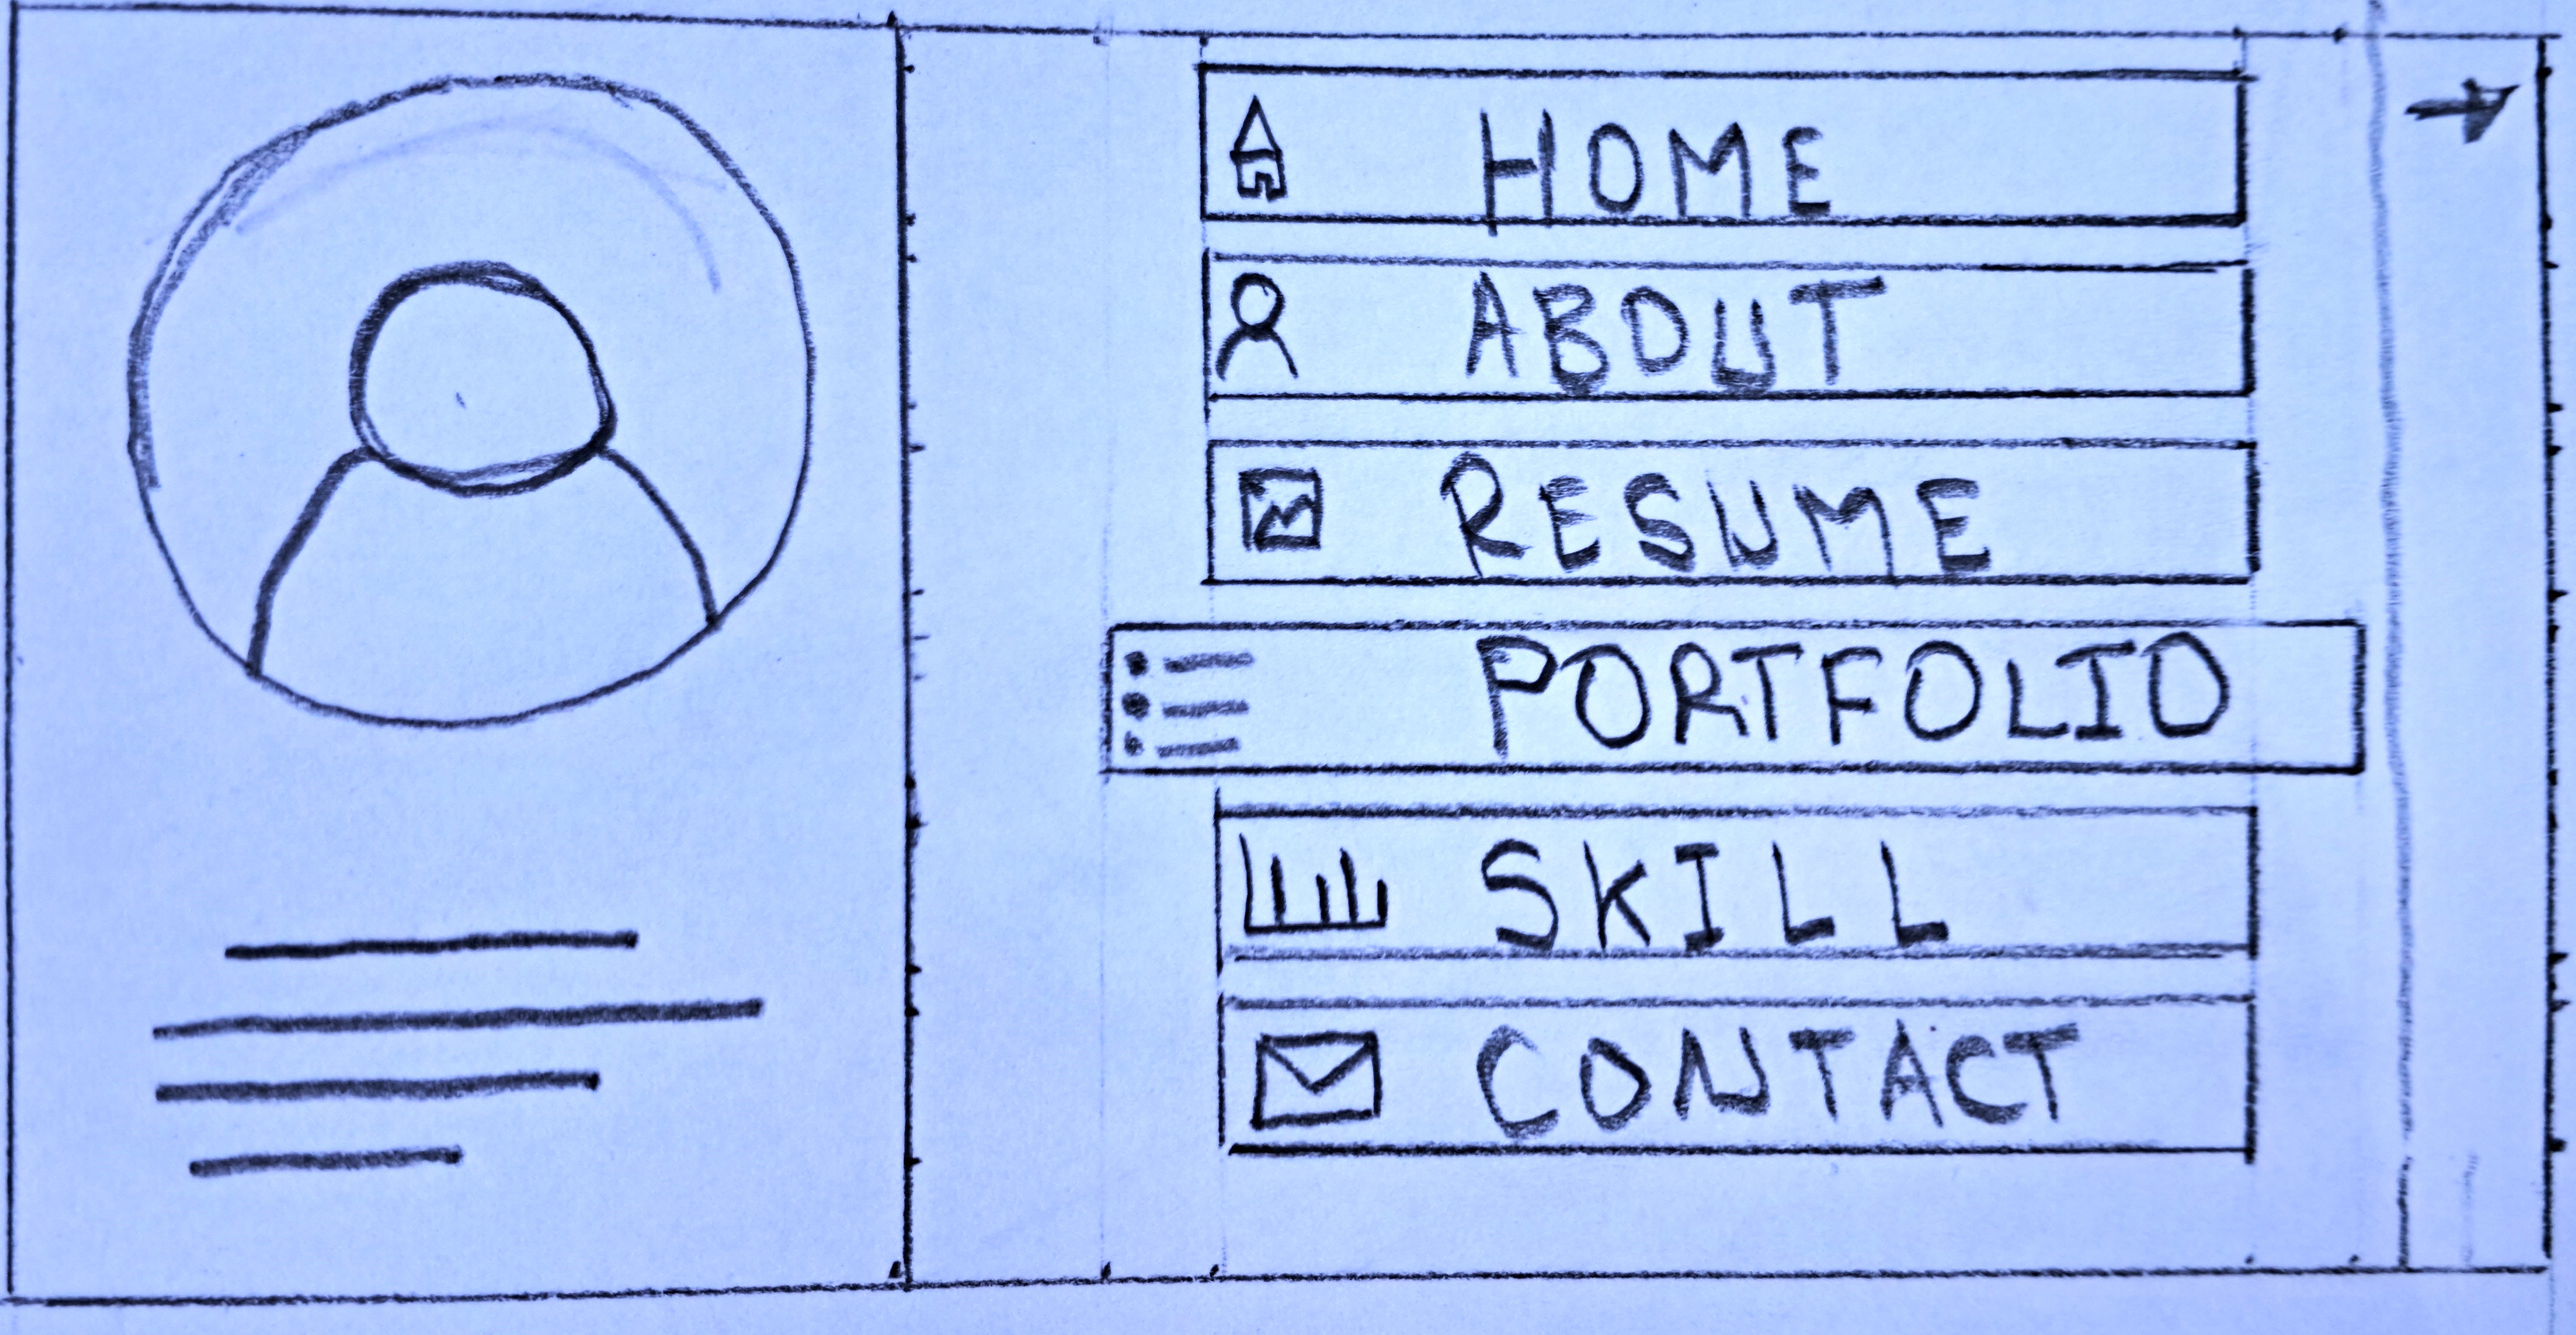 HOME
ABOUT
RESUME
PORTFOLIO
SKILL
CONTACT